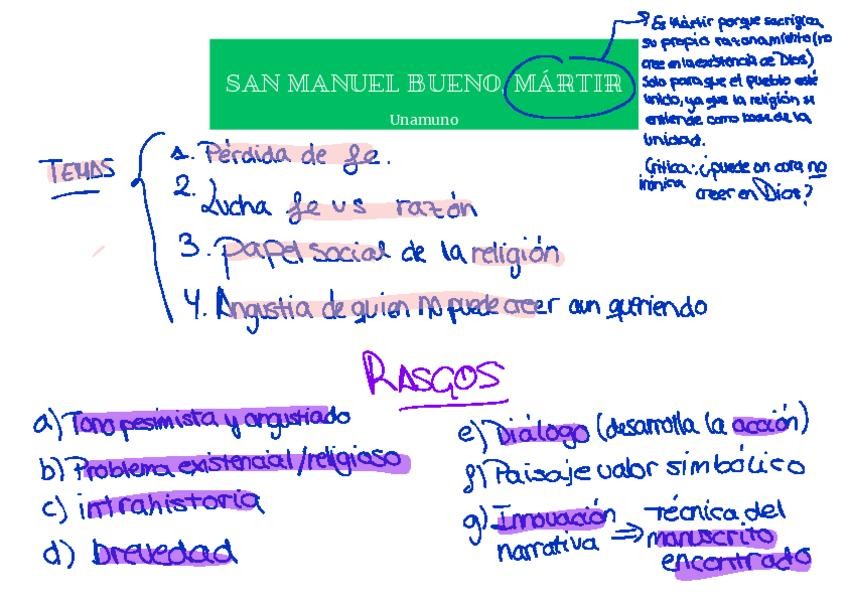 SAN MANUEL BUENO, MÁRTIR
Unamuno
Es Mártir porque sacrifica
su propio razonamiento (no
cree en la existencia de Dios)
Solo para que el pueblo esté
unido, ya que la religión se
entiende como base de la
unidad.
Crítica: ¿puede un cura no
irónica creer en Dios?
TEMAS
1. Pérdida de fe.
2. Lucha fe vs razón
3. Papel social de la religión
4. Angustia de quien no puede creer aun queriendo
RASGOS
a) Tono pesimista y angustiado
b) Problema existencial/religioso
c) intrahistoria
d) brevedad
e) Diálogo (desarrolla la acción)
f) Paisaje valor simbólico
g) Innovación narrativa ⇒ técnica del
manuscrito
encontrado